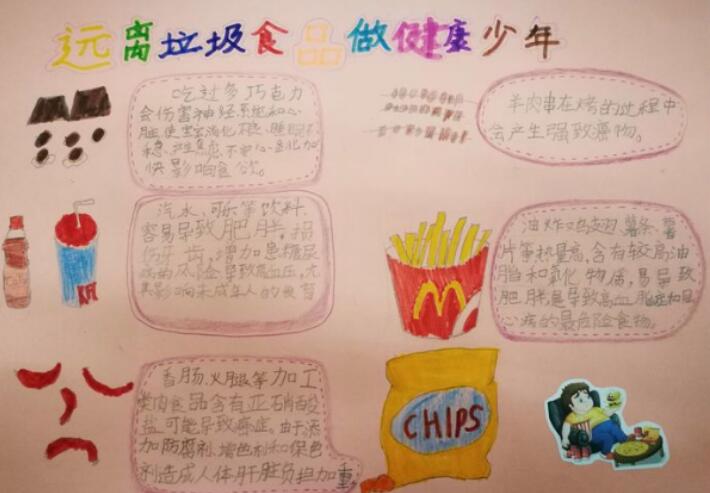 远离垃圾食品做健康少年
吃过多巧克力
会伤害神经系统和心
脏使宝宝消化不良、睡眠不
稳、过度焦虑、不安心
快影响食欲。
羊肉串在烤的过程中
会产生强致癌物。
汽水、可乐等饮料
容易导致肥胖。损
伤牙齿,增加患糖尿
病的风险导致高血压,尤
其影响未成年人的发育
油炸鸡翅薯条、薯
片等热量高,含有较高油
脂和氧化物质,易导致
肥胖是导致高血脂症和冠
心病的最危险食物。
香肠、火腿等加工
类肉食品含有亚硝酸
盐可能导致癌症。由于添
加防腐剂、增色剂和保色
剂造成人体肝脏负担加重。
CHIPS